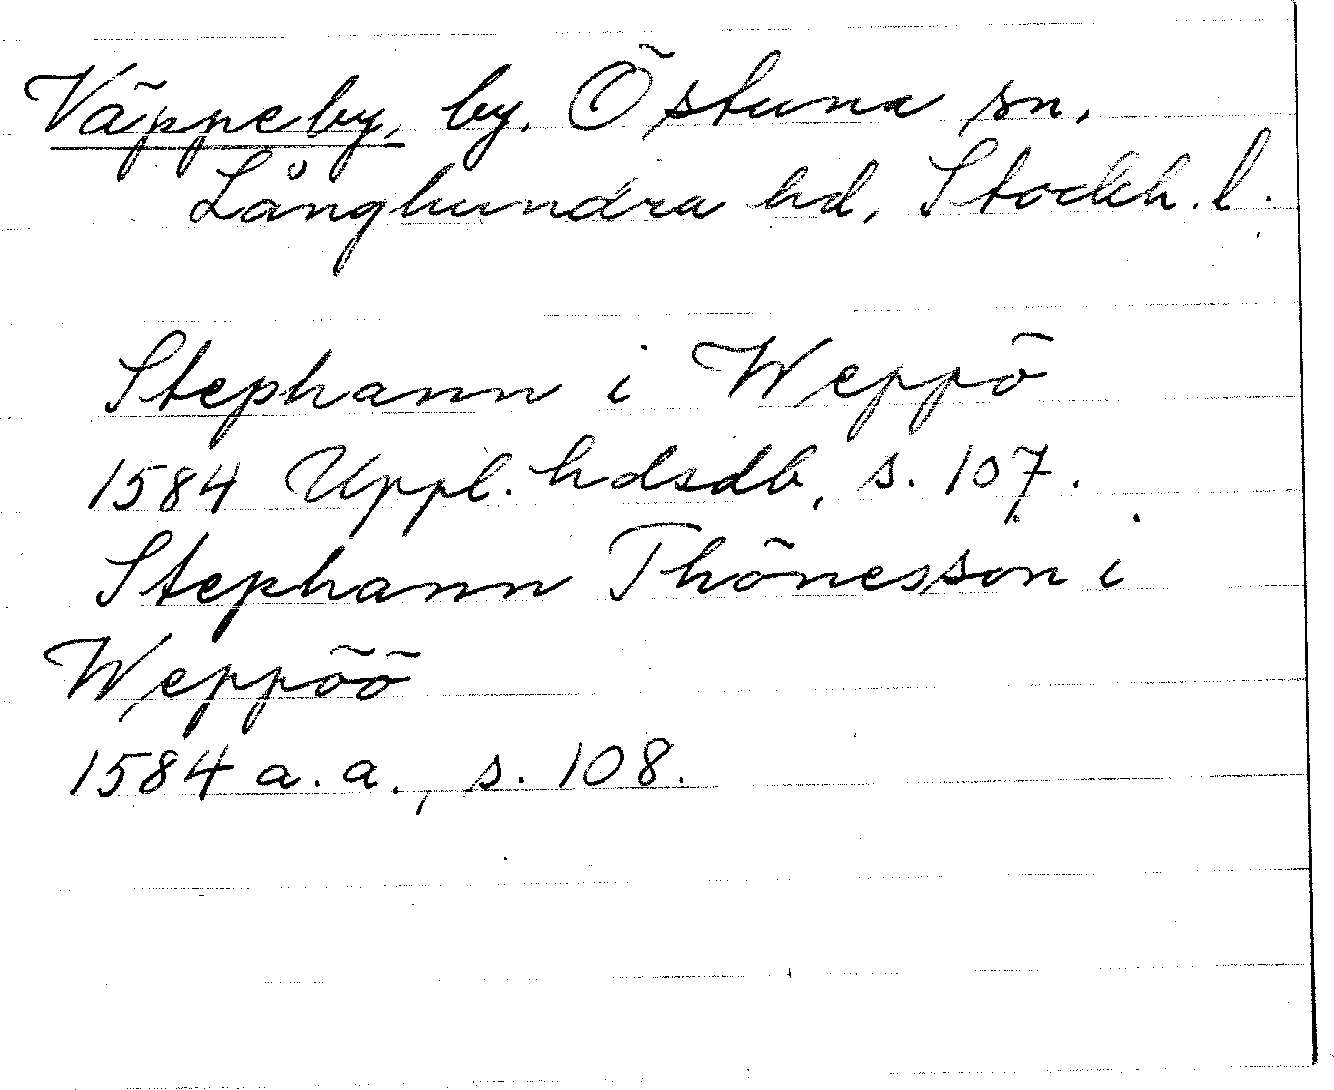 Väppeby, by. Östuna sn.
Långhundra hd, Stockh. l.
Stephann i Weppö
1584 Uppl. hdsdb, s. 107.
Stephann Thönesson i
Weppöö
1584 a. a., s. 108.